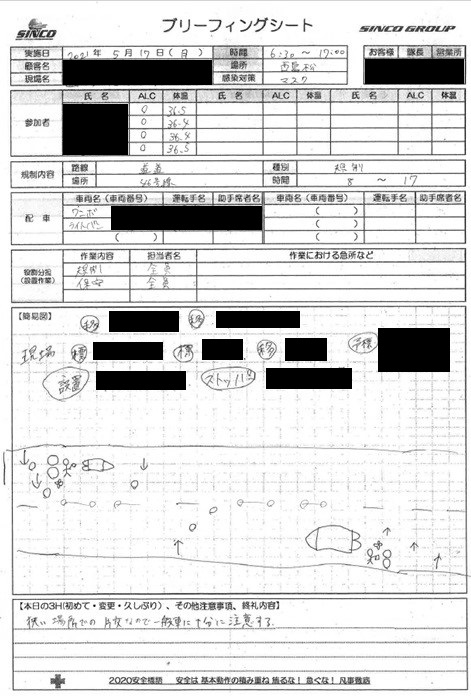 SINCO
ブリーフィングシート
SINCO GROUP
実施日 2021年 5月17日(月) 時間 6:30 ～ 17:00 お客様 隊長 営業所
顧客名 場所
現場名 感染対策 マスク
氏 名 ALC 体温 氏 名 ALC 体温 氏 名 ALC 体温
参加者
0 36.5
0 36.4
0 36.4
0 36.5
規制内容 路線 道道 種別 規制
場所 46号線 時間 8 ～ 17
配 車 車両名(車両番号) 運転手名 助手席者名 車両名(車両番号) 運転手名 助手席者名
ワンボ ( )
ライトバン ( )
( ) ( )
役割分担
(設置作業)
作業内容 担当者名 作業における急所など
規制 全員
保安 全員
【簡易図】
移 移
現場 標 標 移 予備
設置 ストッパー
【本日の3H(初めて・変更・久しぶり)、その他注意事項、終礼内容】
狭い場所での片交なので一般車に十分に注意する。
2020安全標語 安全は 基本動作の積み重ね 焦るな! 急ぐな! 凡事徹底